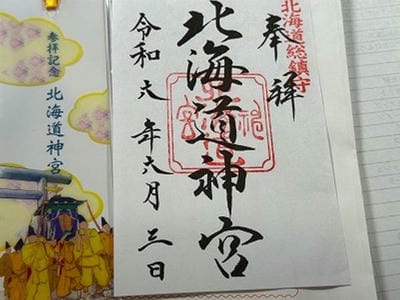 北海道総鎮守
奉拝
北海道神宮
令和六年六月三日
参拝記念
北海道神宮